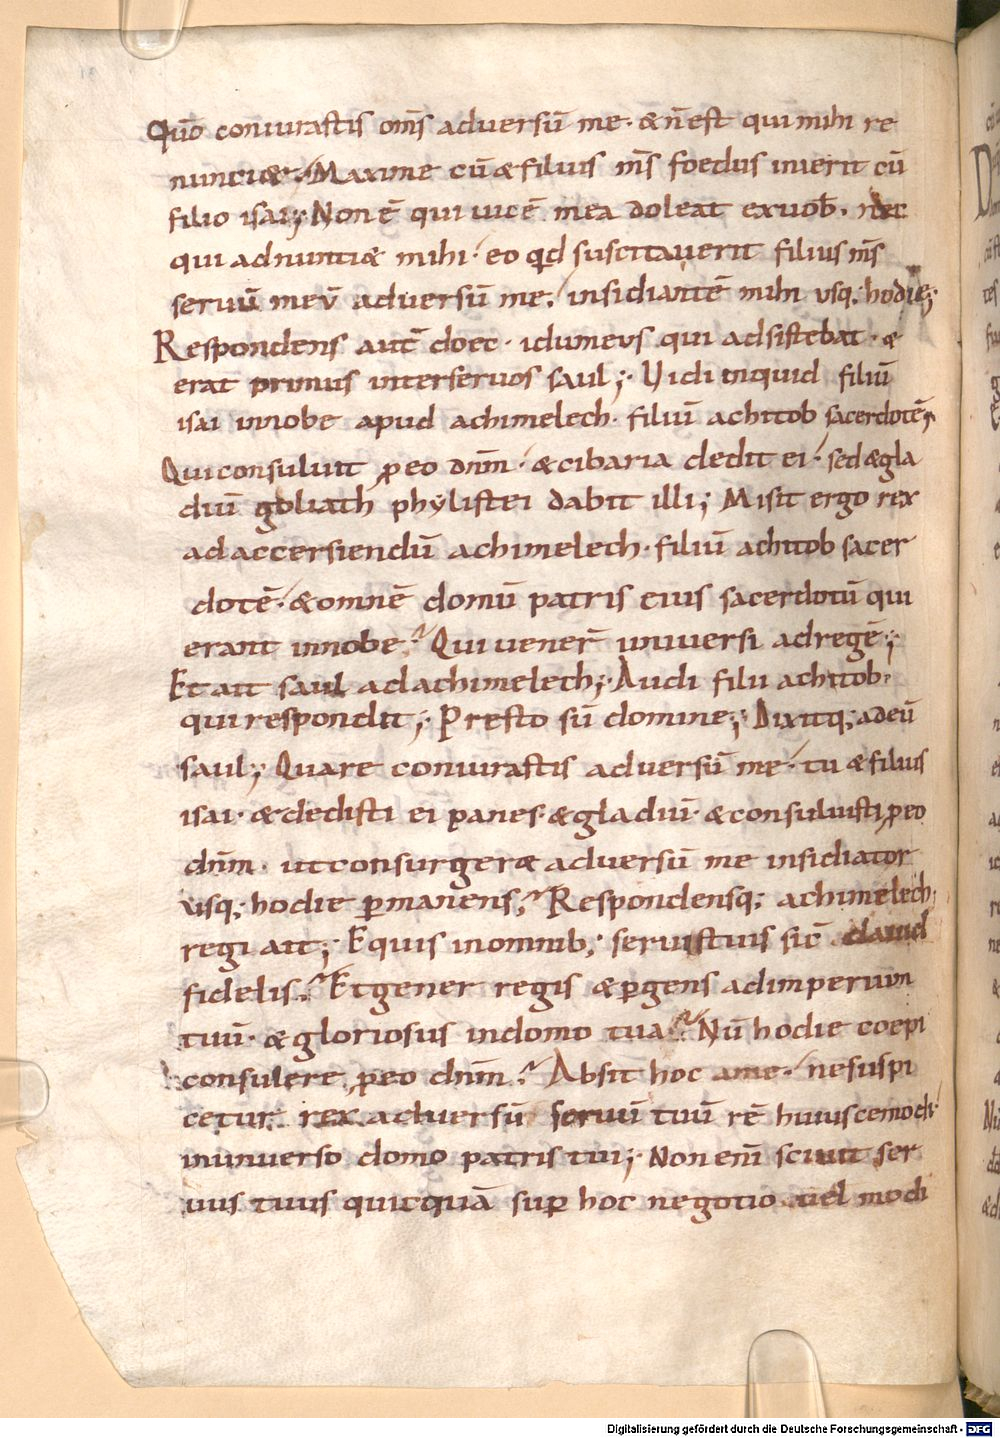 Quo͞ coniurastis om̅s adversū me · & n̄ est qui mihi re
nuntiet, Maxime cū & filius m̅s foedus inierit cū
filio isai; Non ē qui vicē mea doleat ex vob̅ · nec
qui adnuntiæ mihi · eo qđ suscitaverit filius m̅s
servū meū adversū me, insidiantē mihi usq; hodie;
Respondens aut̅ doec · idumeus qui adsistebat · &
erat primus inter servos saul; Vidi inquid filiū
isai in nobe apud achimelech · filiū achitob sacerdotē,
Qui consuluit ꝓ eo dn̅m · & cibaria dedit ei · sed & gla
diū goliath phylistei dabit illi; Misit ergo rex
ad accersiendū achimelech · filiū achitob sacer
dotē · & omnē domū patris eius sacerdotū qui
erant in nobe. Qui vener̄ universi ad regē;
Et ait saul ad achimelech; Audi filii achitob ·
qui respondit; Presto sū domine; Dixitq; ad eū
saul; Quare coniurastis adversū me · tu & filius
isai · & dedisti ei panes · & gladiū · & consuluisti ꝓ eo
dn̅m · ut consurgeræ adversū me insidiator
usq; hodie ꝑmanens, Respondensq; achimelech,
regi ait; Et quis in omnib; servis tuis sic̄ david
fidelis, Et gener regis & ꝑgens ad imperium
tuū · & gloriosus in domo tua. Nū hodie coepi
consulere ꝓ eo dn̅m. Absit hoc a me · ne suspi
cetur rex adversū servū tuū rē huiuscemodi
in universo domo patris tui; Non en̅i scivit ser
vus tuus quicquā suꝑ hoc negotio vel modi
Digitalisierung gefördert durch die Deutsche Forschungsgemeinschaft - DFG